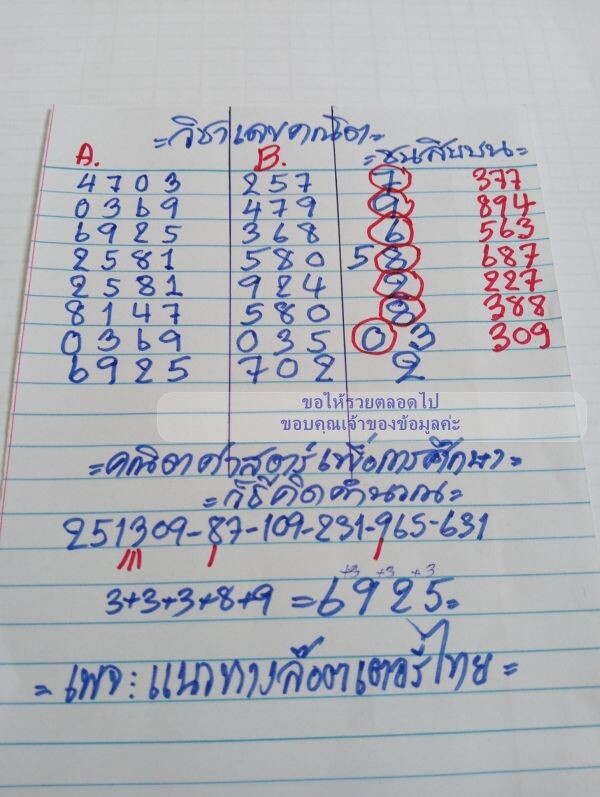 =วิชาเลขคณิต=
A. B. =ชนสิบบน=
4703 257 7 377
0369 479 9 894
6925 368 6 563
2581 580 58 687
2581 924 2 227
8147 580 8 388
0369 035 03 309
6925 702 2
ขอให้รวยตลอดไป
ขอบคุณเจ้าของข้อมูลค่ะ
=คณิตศาสตร์เพื่อการศึกษา=
=วิธีคิดคำนวณ=
251309-87-109-231-965-631
+3 +3 +3
3+3+3+8+9=6925=
=เพจ:แนวทางล๊อตเตอรี่ไทย=